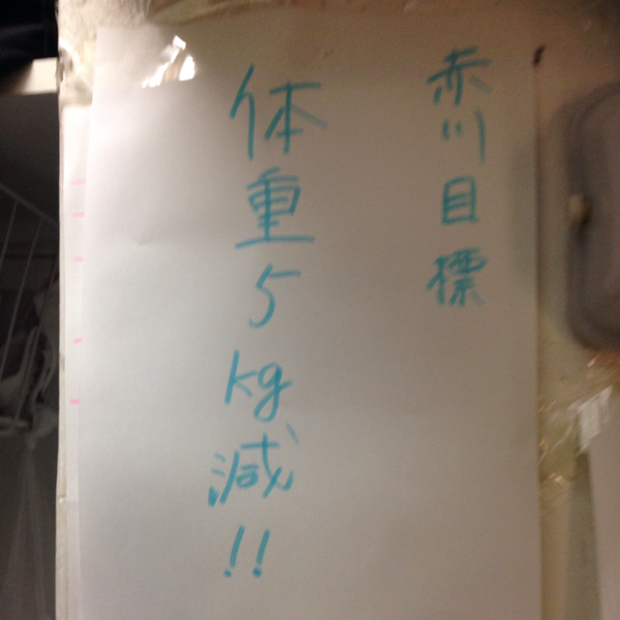 赤川目標
体重5kg減!!